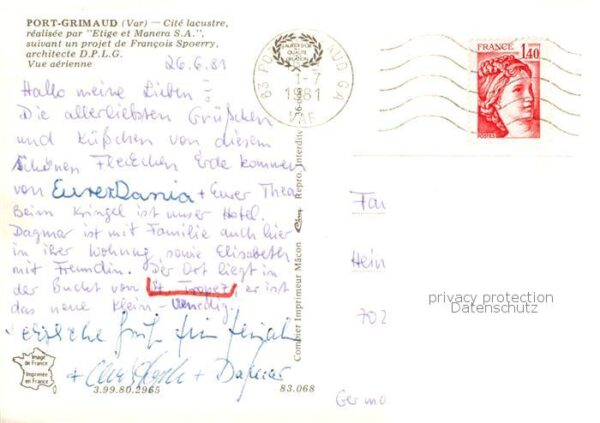 PORT-GRIMAUD (Var) — Cité lacustre,
réalisée par "Etige et Manera S.A.",
suivant un projet de François Spoerry,
architecte D.P.L.G.
Vue aérienne
26.6.81
Hallo meine Lieben!
Die allerliebsten Grüßchen
und Küßchen von diesem
schönen Fleckchen Erde kommen
von Eurer Dania + Eurer Thea
Beim Kringel ist unser Hotel.
Dagmar ist mit Familie auch hier
in ihrer Wohnung sowie Elisabeth
mit Freundin. Der Ort liegt in
der Bucht von St. Tropez, er ist
das neue Klein-Venedig.
+ Christoph + Dagmar
Image
de France
Imprimée
en France
3.99.80.2965
83.068
Combier Imprimeur Mâcon
Repro. Interdite
83 PO UD GA
1-7
1981
VAR
FRANCE
1,40
POSTES
Fa
Hein
702
Germa
privacy protection
Datenschutz